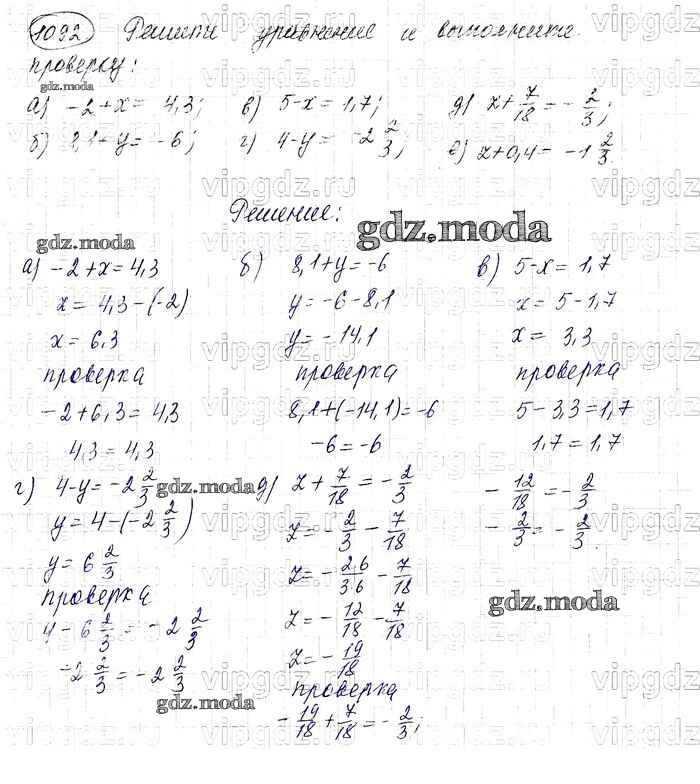 1092 Решити уравнение и выполните
проверку:
gdz.moda
а) -2+x = 4,3; в) 5-x = 1,7; д) z + 7/18 = - 2/3;
б) 8,1+y = -6; г) 4-y = -2 2/3; е) z+0,4 = -1 2/3.
Решение:
gdz.moda
gdz.moda
а) -2+x = 4,3
x = 4,3-(-2)
x = 6,3
проверка
-2+6,3 = 4,3
4,3 = 4,3
б) 8,1+y = -6
y = -6-8,1
y = -14,1
проверка
8,1+(-14,1) = -6
-6 = -6
в) 5-x = 1,7
x = 5-1,7
x = 3,3
проверка
5-3,3 = 1,7
1,7 = 1,7
г) 4-y = -2 2/3
gdz.moda
y = 4-(-2 2/3)
y = 6 2/3
проверка
4-6 2/3 = -2 2/3
-2 2/3 = -2 2/3
gdz.moda
д) z + 7/18 = - 2/3
z = - 2/3 - 7/18
z = - 2·6/36 - 7/18
z = - 12/18 - 7/18
z = - 19/18
проверка
- 19/18 + 7/18 = - 2/3;
- 12/18 = - 2/3
- 2/3 = - 2/3.
gdz.moda
vipgdz.ru